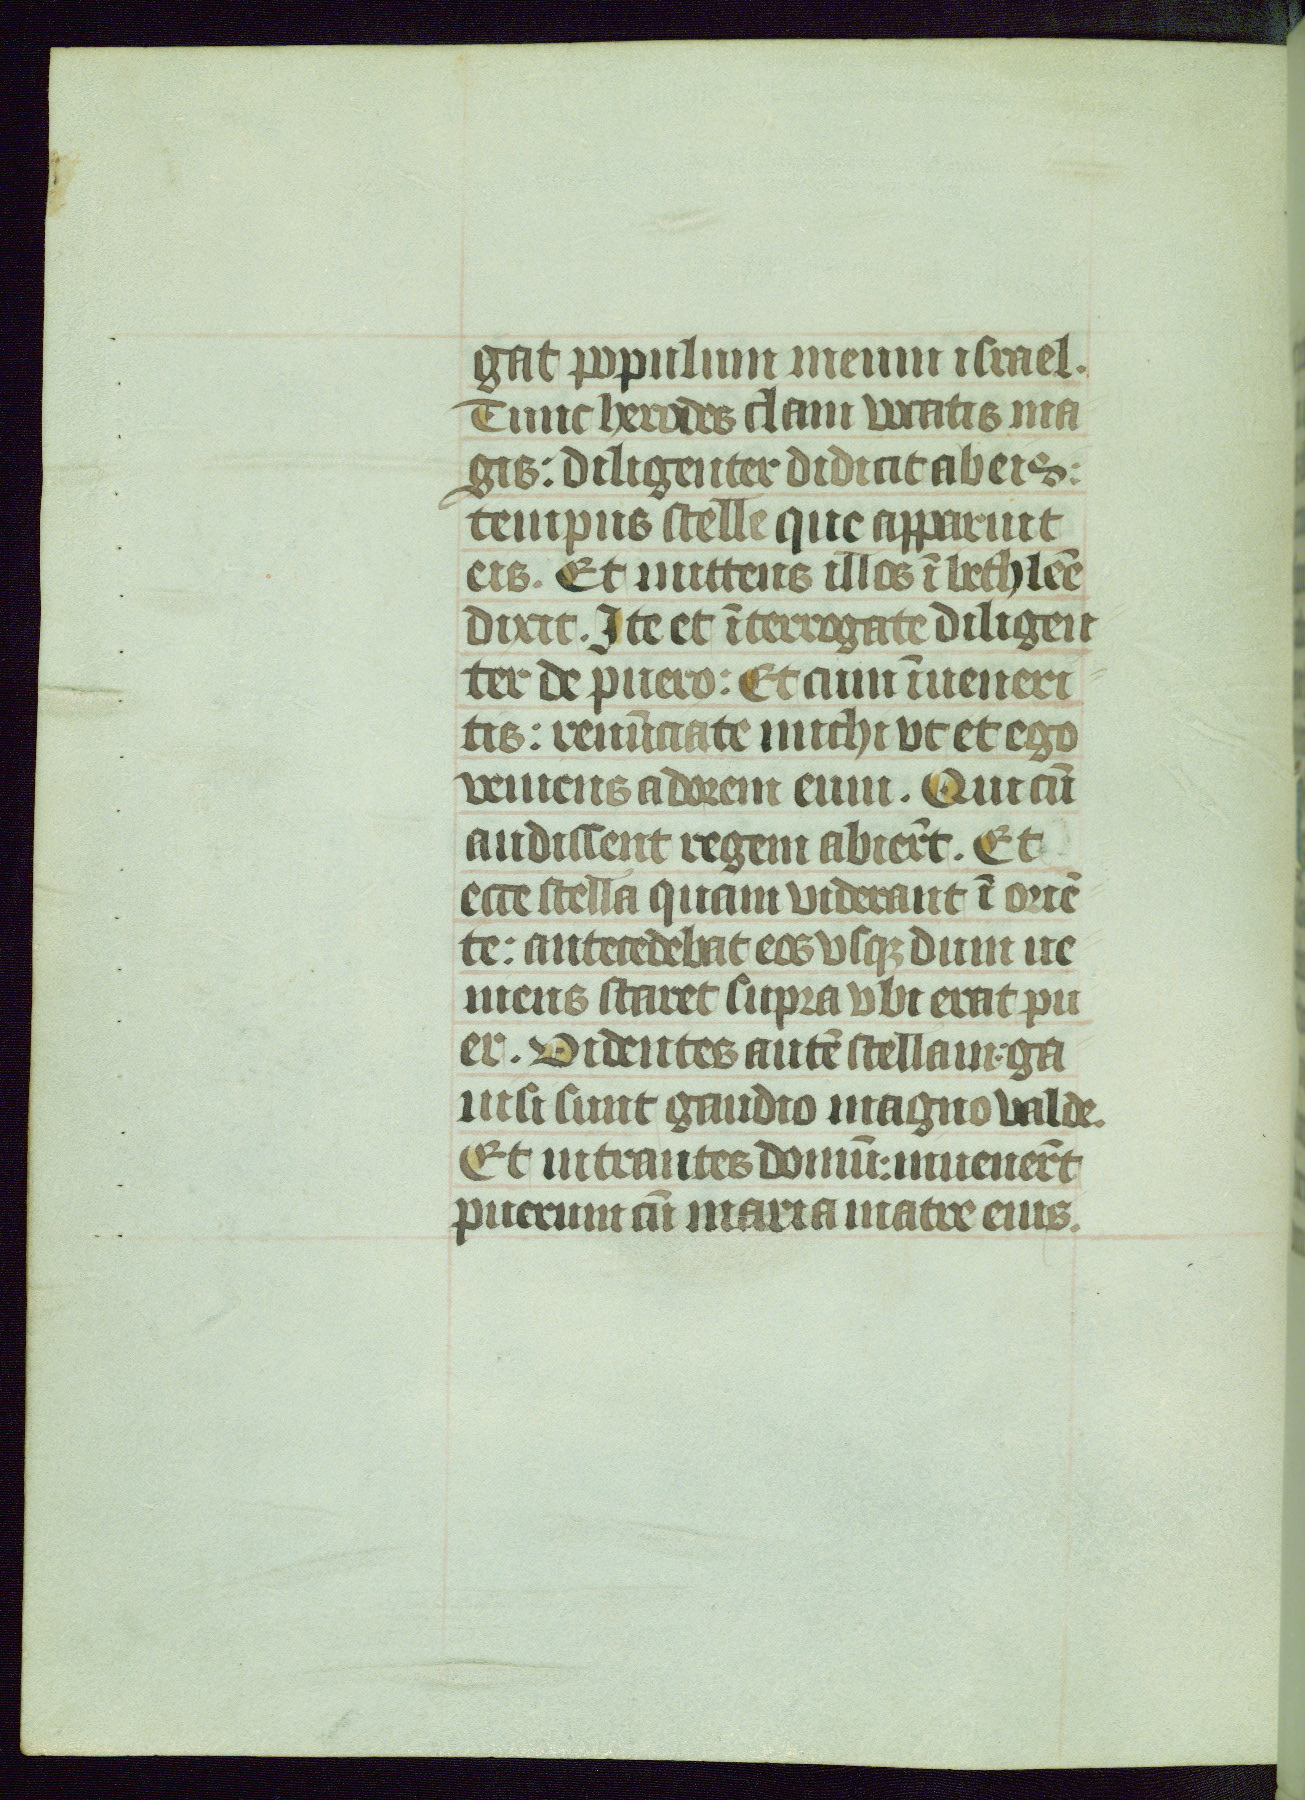 gat populum meum israel.
Tunc herodes clam vocatis ma
gis: diligenter didicit ab eis:
tempus stelle que apparuit
eis. Et mittens illos ī bethleē
dixit. Ite et īterrogate diligen
ter de puero: Et cum īueneri
tis: renūciate michi vt et ego
veniens adorem eum. Qui cū
audissent regem abiert̄. Et
ecce stella quam viderant ī oriē
te: antecedebat eos vsqꝫ dum ue
niens staret supra vbi erat pu
er. Videntes autē stellam: ga
uisi sunt gaudio magno valde.
Et intrantes domū: inuenert̄
puerum cū maria matre eius.